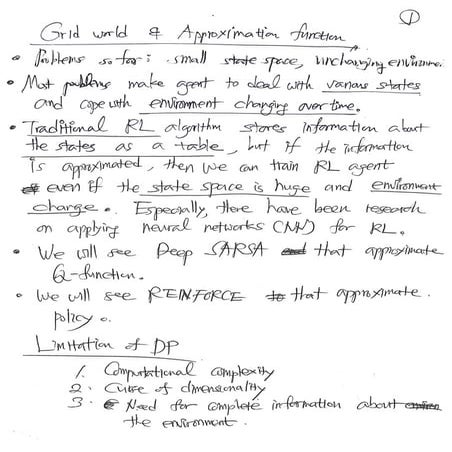 ①
Grid world & Approximation function
• Problems so far : small state space, unchanging environmen
• Most problems make agent to deal with various states
and cope with environment changing over time.
• Traditional RL algorithm stores information about
the states as a table, but if the information
is approximated, then we can train RL agent
even if the state space is huge and environment
change. Especially, there have been research
on applying neural networks (NN) for RL.
• We will see Deep SARSA that approximate
Q-function.
• We will see REINFORCE that approximate
policy.
Limitation of DP
1. Computational complexity
2. Curse of dimensionality
3. Need for complete information about
the environment.